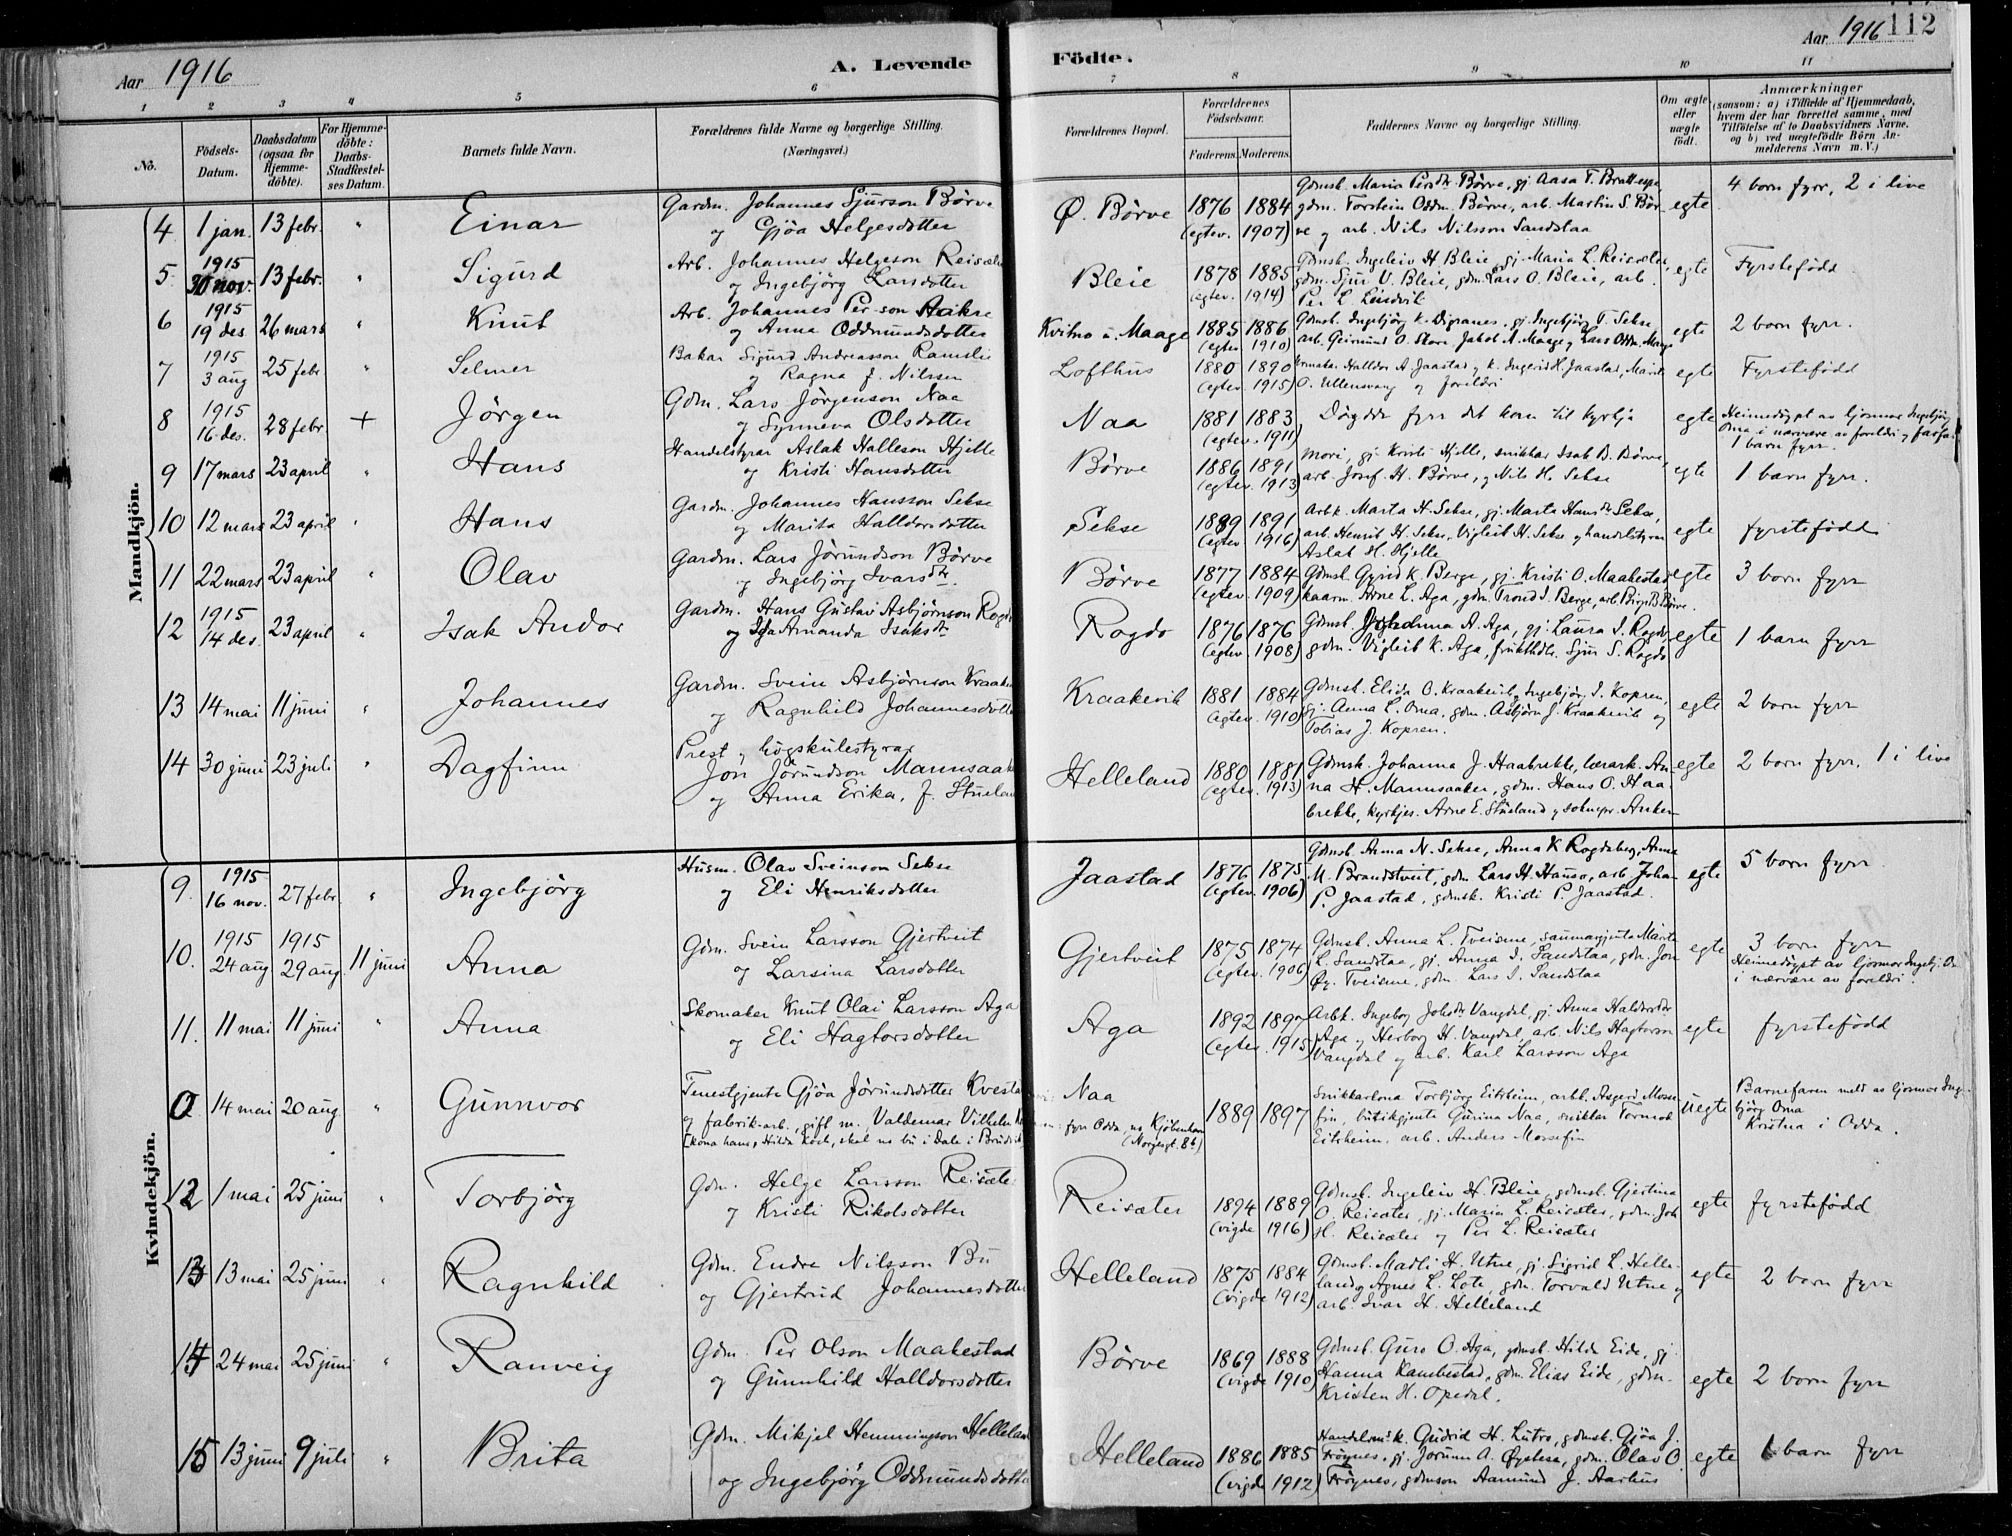 Aar 1916
A. Levende Födte.
Aar 1916 112
1 2 3 4 5 6 7 8 9 10 11
No.
Födsels-Datum.
Daabsdatum (ogsaa for Hjemmedöbte).
For Hjemmedöbte: Daabs-Stadfæstelses Datum.
Barnets fulde Navn.
Forældrenes fulde Navne og borgerlige Stilling. (Næringsvei.)
Forældrenes Bopæl.
Forældrenes Födselsaar.
Faderens. Moderens.
Faddernes Navne og borgerlige Stilling.
Om ægte eller uægte födt.
Anmærkninger
(saasom: a) i Tilfælde af Hjemmedaab, hvem der har forrettet samme, med Tilföielse af to Daabsvidners Navne, og b) ved uægtefödte Börn Anmelderens Navn m. V.)
Mandkjön.
4 1 jan. 13 febr. " Einar
Gardm. Johannes Sjurson Börve
og Gjöa Helgesdotter
Ö. Börve 1876 1884 (egtev. 1907)
Gdmsk. Maria Persdtr Börve, gj. Aasa T.
gdm. Torstein Oddm. Börve, arb. Martin S. Börve
og arb. Nils Nilsson Sandstaa
egte 4 born fyrr, 2 i live
5 1915 30 nov. 13 febr. " Sigurd
Arb. Johannes Helgeson Reisæter
og Ingebjörg Larsdotter
Bleie 1878 1885 (egtev. 1914)
Gdmsk. Ingeleiv H. Bleie, gj. Maria L. Reisæter,
gdm. Sjur V. Bleie, gdm. Lars O. Bleie, arb.
Per L.
egte Fyrstefödd
6 1915 19 des. 26 mars " Knut
Arb. Johannes Person
og Anna Oddmundsdotter
Kvitno u. Maage 1885 1886 (egtev. 1910)
Gdmsk. Ingebjörg K. Digranes, gj. Ingebjörg T. Sekse,
arb. Geirmund O. Skare, Jakob M. Maage og Lars Oddm. Maage
egte 2 born fyrr.
7 1915 3 aug 25 febr " Selmer
Bakar Sigurd Andreasson
og Ragna f. Nilsen
Lofthus 1880 1890 (egtev. 1915)
Halldor A. Jaastad og k. Ingerid H. Jaastad,
O. Ullensvang og foreldri
egte Fyrstefödd
8 1915 16 des. 28 febr. + Jörgen
Gdm. Lars Jörgenson Naa
og Synneva Olsdotter
Naa 1881 1883 (egtev. 1911)
Döydde fyrr det kom til kyrkja
egte Heimedöypt av ljormor Ingebjörg
Oma i nærvære av foreldri og farfar
1 barn fyrr.
9 17 mars 23 april " Hans
Handelstyrar Aslak Halleson Hjelle
og Kristi Hansdotter
Börve 1886 1891 (egtev. 1913)
Mori, gj. Kristi Hjelle, snikkar Isak B. Börve,
arb. Josef H. Börve, og Nils H. Sekse
egte 1 barn fyrr.
10 12 mars 23 april " Hans
Gardm. Johannes Hansson Sekse
og Marita Halldorsdotter
Sekse 1889 1891 (egtev. 1916)
Arbk. Marta H. Sekse, gj. Marta Hansdtr Sekse,
arb. Henrik H. Sekse, Vigleik H. Sekse og handelstyrar
Aslak H. Hjelle
egte fyrstefödd
11 22 mars 23 april " Olav
Gardm. Lars Jörundson Börve
og Ingebjörg Ivarsdtr.
Börve 1877 1884 (egtev. 1909)
Gdmsk. Gyrid K. Berge, gj. Kristi O. Maakestad
kaarm. Arne L. Aga, gdm. Trond I. Berge, arb. Birgit B. Börve.
egte 3 born fyrr
12 1915 14 des. 23 april " Isak Andor
Gardm. Hans Gustav Asbjörnson Rogdo
og Ida Amanda Isaksdtr
Rogdo 1876 1876 (egtev. 1908)
Gdmsk. Johanna A. Aga, gj. Laura I. Rogdo,
gdm. Vigleik K. Aga, frukthdlr. Sjur S. Rogdo
egte 1 barn fyrr
13 14 mai 11 juni " Johannes
Gardm. Svein Asbjörnson Kraakevik
og Ragnhild Johannesdotter
Kraakevik 1881 1884 (egtev. 1910)
Gdmsk. Elida O. Kraakevik, Ingebjörg I. Kopren,
gj. Anna L. Oma, gdm. Asbjörn J. Kraakevik og
Tobias J. Kopren.
egte 2 born fyrr
14 30 juni 23 juli " Dagfinn
Prest og högskulestyrar
Jon Jörundson Mannsaaker
og Anna Erika, f. Stueland
Helleland 1880 1881 (egtev. 1913)
Gdmsk. Johanna J. Haabrekke, lærark. Anna
H. Mannsaaker, gdm. Hans O. Haabrekke,
kyrkjes. Arne E. Stueland og soknepr. Anker
egte 2 born fyrr, 1 i live
Kvindekjön.
9. 1915 16 nov. 27 febr. " Ingebjörg
Husm. Olav Sveinson Sekse
og Eli Henriksdotter
Jaastad 1876 1875 (egtev. 1906)
Gdmsk. Anna N. Sekse, Anna K. Rogdaberg, Anna
M. Brandstveit, gdm. Lars H. Hauso, arb. Johan
P. Jaastad, gdmsk. Kristi P. Jaastad.
egte 5 born fyrr
10. 1915 24 aug 1915 29 aug. 11 juni Anna
Gdm. Svein Larsson Gjertveit
og Larsina Larsdotter
Gjertveit 1875 1874 (egtev. 1906)
Gdmsk. Anna L. Tveisme, saumagjenta Marita
L. Sandstaa, gj. Anna I. Sandstaa, gdm. Jon
Öy. Tveisme, gdm. Lars I. Sandstaa
egte 3 born fyrr
Heimedöypt av ljormor Ingebj. Oma
i nærvære av foreldri.
11. 11 mai 11 juni " Anna
Skomaker Knut Olai Larsson Aga
og Eli Hagtorsdotter
Aga 1892 1897 (egtev. 1915)
Arbk. Ingeborg Johsdtr Vangdal, gj. Anna Haldorsdtr
Aga og Herborg H. Vangdal, arb. Nils Hagtorson
Vangdal og arb. Karl Larsson Aga
egte fyrstefödd
0 14 mai 20 aug " Gunnvor
Tenestgjente Gjöa Jörundsdotter
og fabrik-arb., gift m. Valdemar Vilhelm
[kona hans, Hilda Koch, skal no bu i Dale i Bruvik
Naa
fyrr Odda, no Kjöbenhavn
(Norgesgt. 8b)
1889 1897
Snikkarkona Torbjörg Eitrheim, arbk. Asgerd Mosse-
fin, butikgjente Gurina Naa, snikkar Tormod
Eitrheim, arb. Anders Mossefin
uegte Barnefaren meld av ljormor Inge-
björg Oma
Kristna i Odda.
12 1 mai 25 juni " Torbjörg
Gdm. Helge Larsson Reisæter
og Kristi Nikolsdotter
Reisæter 1894 1889 (vigde 1916)
Gdmsk. Ingeleiv H. Bleie, gdmsk. Gjertina
O. Reisæter, gj. Maria L. Reisæter, gdm. Joh
H. Reisæter og Per L. Reisæter
egte fyrstefödd
13 13 mai 25 juni " Ragnhild
Gdm. Endre Nilsson Bu
og Gjertrud Johannesdotter
Helleland 1875 1884 (vigde 1912)
Gdmsk. Madli H. Utne, gj. Sigrid L. Helle-
land og Agnes L. Lote, gdm. Torvald Utne og
arb. Ivar H. Helleland
egte 2 born fyrr
14 24 mai 25 juni " Ranveig
Gdm. Per Olson Maakestad
og Gunnhild Halldorsdotter
Börve 1869 1888 (vigde 1910)
Gdmsk. Guro O. Aga, gdmsk. Hilda Eide, gj.
Hanna Kambestad, gdm. Elias Eide, gdm.
Kristen H. Opedal.
egte 2 born fyrr
15 13 juni 9 juli " Brita
Gdm. Mikjel Hemmingson Helleland
og Ingebjörg Oddmundsdotter
Helleland 1886 1885 (vigde 1912)
Handelsmsk. Gudrid H. Lutro, gdmsk. Gjöa J.
Fröynes, gj. Jorunn A. Öystese, gdm. Olav O.
Fröynes, gdmson Aamund J. Aarhus
egte 1 barn fyrr